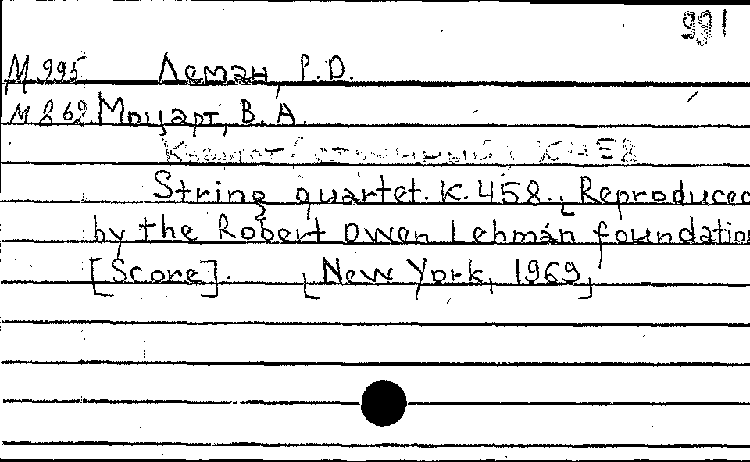 991
М 995 Леман, Р.D.
М 862 Моцарт, В. А.
Квартет (струнный) К 458
String quartet. K. 458. [Reproduced
by the Robert Owen Lehman foundation
[Score]. [New York, 1969]